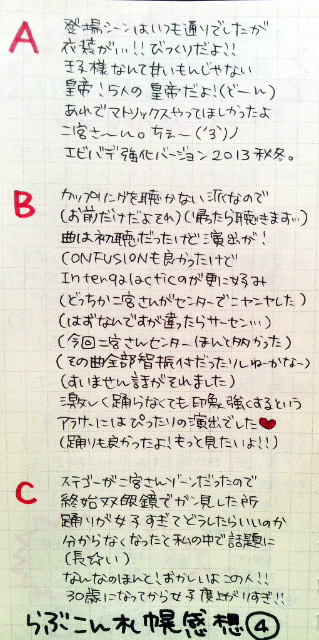 A
登場シーンはいつも通りでしたが
衣装がぃぃ!!びっくりだよ!!
王子様なんて甘いもんじゃない
皇帝!5人の皇帝だよ!(どーん)
あれでマトリックスやってほしかったよ
二宮さーん。ちぇー(´3`)ノ
エビバデ強化バージョン2013秋冬。
B
カップリングを聴かない派なので
(お前だけだよそれ)(帰ったら聴きます…)
曲は初聴だったけど演出が!
CONFUSIONも良かったけど
Intergalacticのが更に好み
(どっちか二宮さんがセンターでニヤニヤした)
(はずなんですが違ったらサーセン…)
(今回二宮さんセンターほんと多かった)
(その曲全部智振付だったりしねーかなー)
(すいません話がそれました)
激しく踊らなくても印象強くするという
アラサーにはぴったりの演出でした♥
(踊りも良かったよ!もっと見たいよ!!)
C
ステゴーが二宮さんゾーンだったので
終始双眼鏡でガン見した所
踊りが女子すぎてどうしたらいいのか
分からなくなったと私の中で話題に
(長☆い)
なんなのほんと!おかしいよこの人!!
30歳になってから女子度上がりすぎ!!
らぶこん札幌感想④